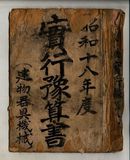 昭和十八年度
實行豫算書
（建物器具機械）